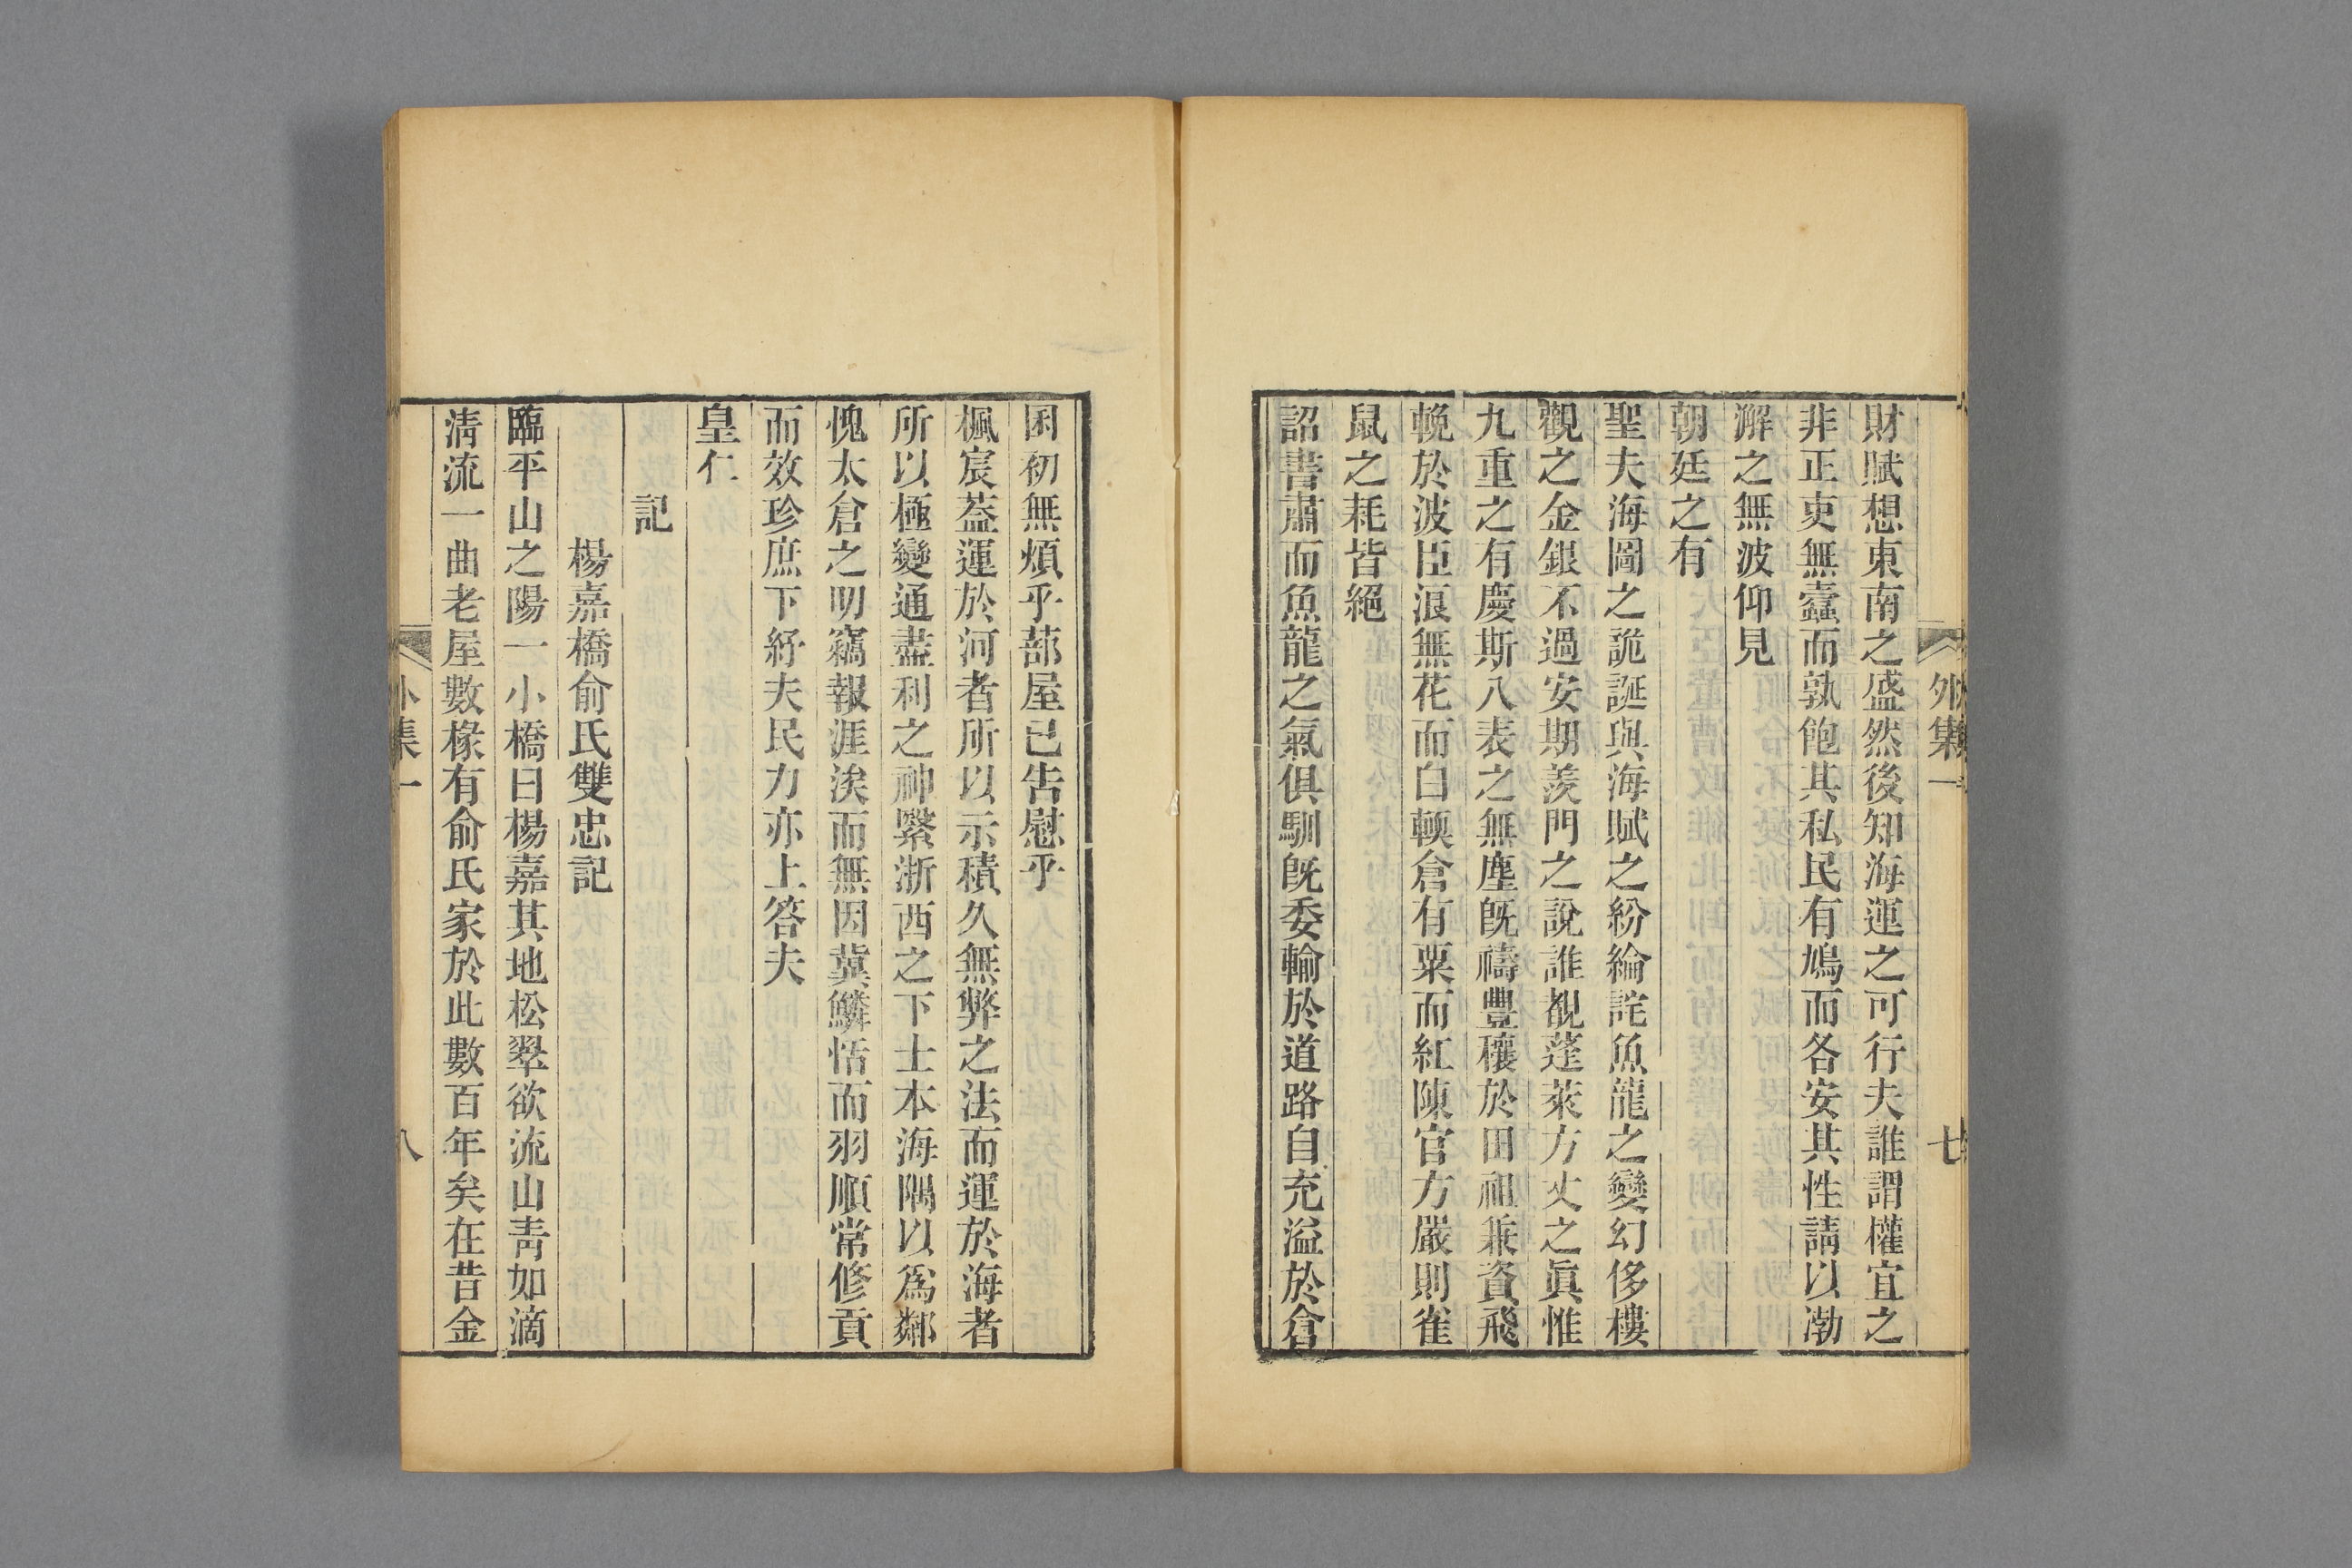 外集一
七
財賦想東南之盛然後知海運之可行夫誰謂權宜之
非正吏無蠹而孰飽其私民有鳩而各安其性請以渤
澥之無波仰見
朝廷之有
聖夫海圖之詭誕與海賦之紛綸詫魚龍之變幻侈樓
觀之金銀不過安期羨門之說誰覩蓬萊方丈之眞惟
九重之有慶斯八表之無塵旣禱豐穰於田祖兼資飛
輓於波臣浪無花而白輭倉有粟而紅陳官方嚴則雀
鼠之耗皆絕
詔書肅而魚龍之氣俱馴旣委輸於道路自充溢於倉
囷初無煩乎蔀屋已吿慰乎
楓宸葢運於河者所以示積久無弊之法而運於海者
所以極變通盡利之神緊浙西之下士本海隅以爲鄰
愧太倉之叨竊報涯涘而無因冀鱗恬而羽順常修貢
而效珍庶下紓夫民力亦上答夫
皇仁
記
楊嘉橋俞氏雙忠記
臨平山之陽一小橋曰楊嘉其地松翠欲流山靑如滴
淸流一曲老屋數椽有俞氏家於此數百年矣在昔金
外集一
八